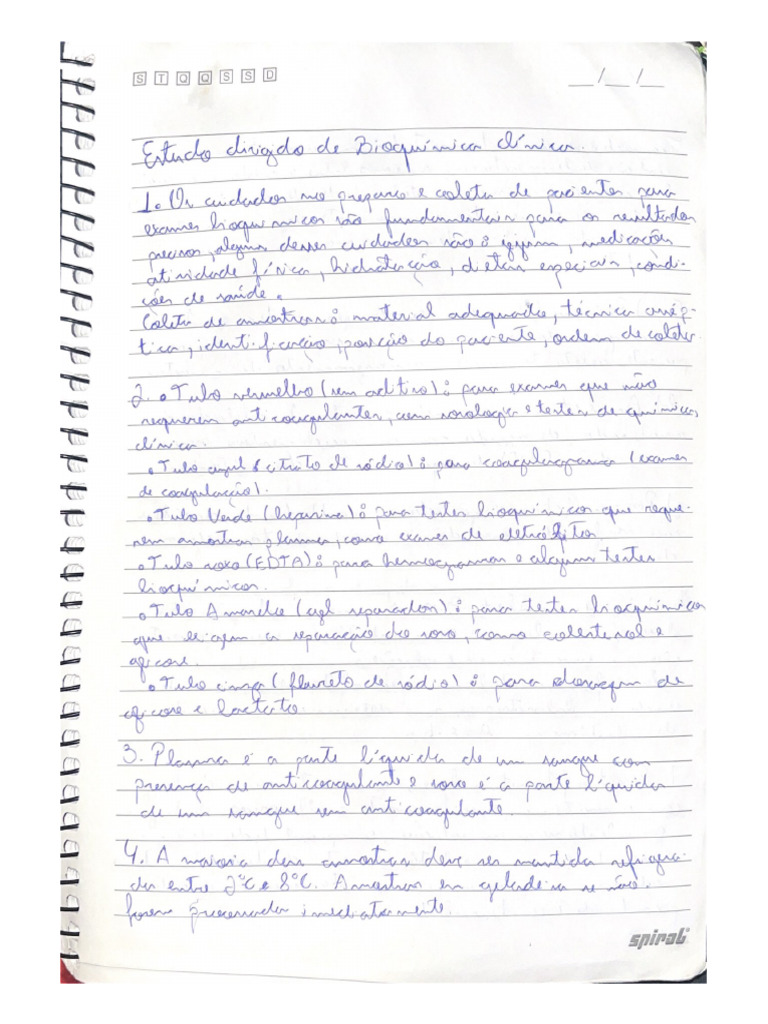 S T Q Q S S D
__/__/__
Estudo dirigido de Bioquímica clínica.
1. Os cuidados no preparo e coleta de pacientes para
exames bioquímicos são fundamentais para os resultados
precisos, alguns desses cuidados são: jejum, medicações
atividade física, hidratação, dietas especiais, condi-
ções de saúde.
Coleta de amostras: material adequado, técnica assép-
tica, identificação, posição do paciente, ordem de coleta.
2. • Tubo vermelho (sem aditivo): para exames que não
requerem anticoagulantes, como sorologia e testes de química
clínica.
• Tubo azul (citrato de sódio): para coagulograma (exames
de coagulação).
• Tubo Verde (heparina): para testes bioquímicos que reque-
rem amostras plasma, como exames de eletrólitos.
• Tubo roxo (EDTA): para hemogramas e alguns testes
bioquímicos.
• Tubo Amarelo (gel separador): para testes bioquímicos
que exigem a separação do soro, como colesterol e
glicose.
• Tubo cinza (fluoreto de sódio): para dosagem de
glicose e lactato
3. Plasma é a parte líquida de um sangue com
presença de anticoagulante e soro é a parte líquida
de um sangue sem anticoagulante.
4. A maioria das amostras deve ser mantida refrigera-
da entre 2°C e 8°C. Amostras em geladeira se não
forem processadas imediatamente.
spiral